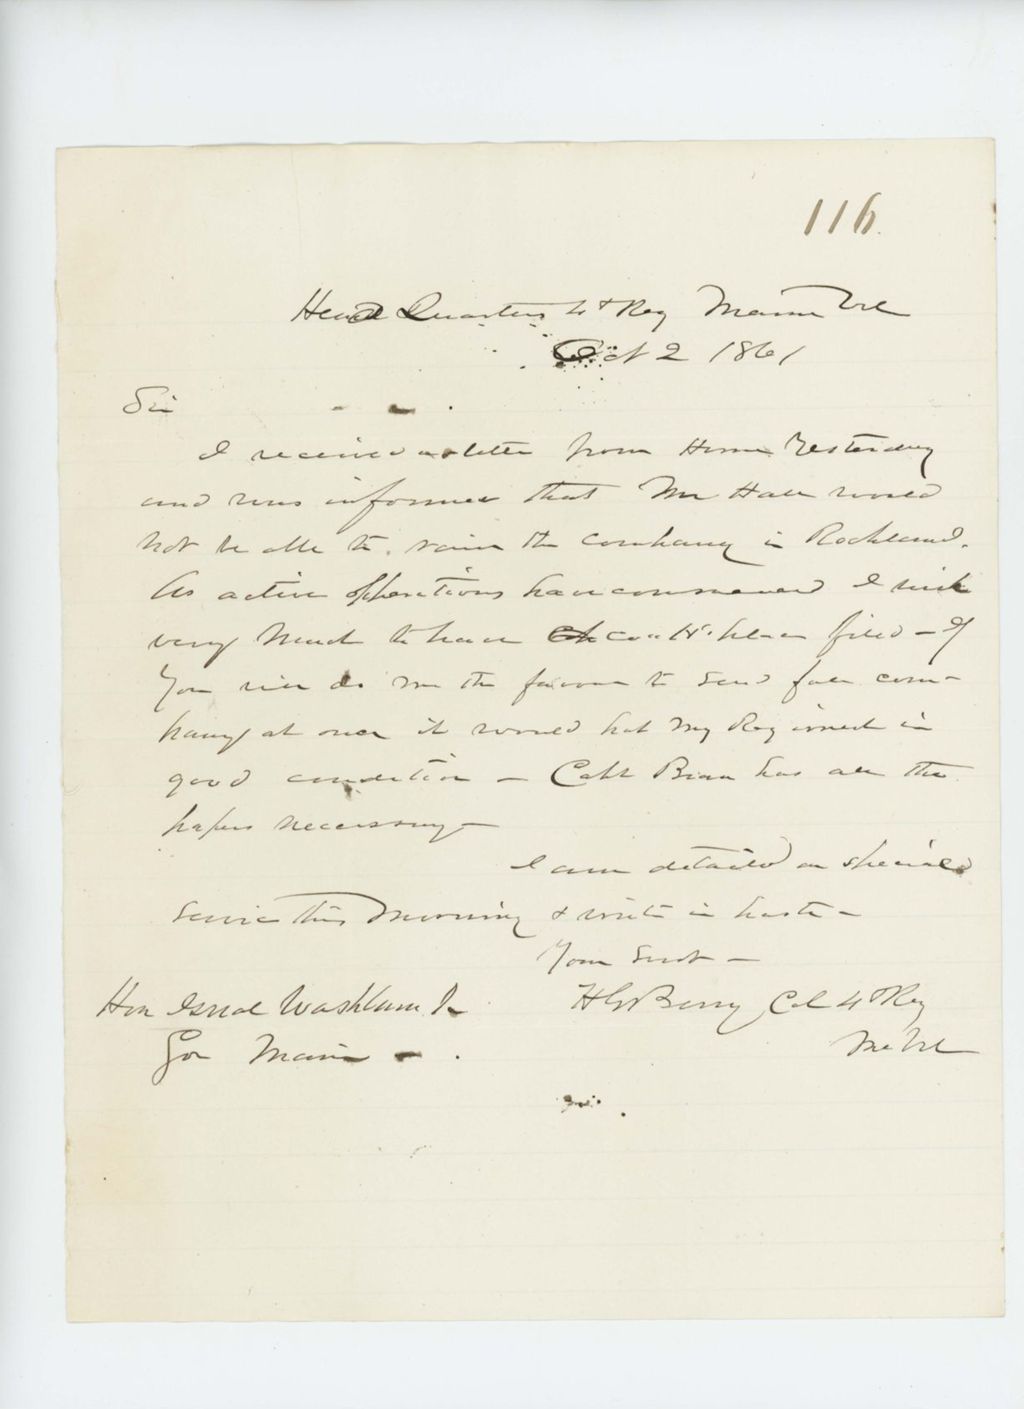 116.
Head Quarters 4th Reg Maine Vol
Oct 2 1861
Sir
I received a letter from Home Yesterday
and was informed that Mr Hall would
not be able to raise the company in Rockland.
As active opperations have commenced I wish
very much to have Co H's place filled – If
You will do me the favour to send full com-
pany at once it would put my Regiment in
good condition – Capt Bean has all the
papers necessary –
I am detailed on special
service this morning & write in haste –
Your Servt –
Hon Israel Washburn Jr H G Berry Col 4th Reg
Gov Maine – Me Vol